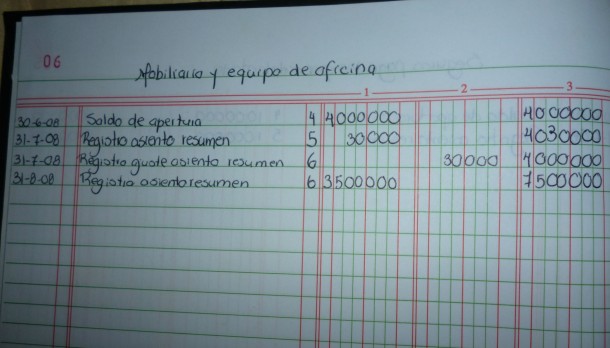 06
Mobiliario y equipo de oficina
1 2 3
30-6-08 Saldo de apertura 4 4000000 4000000
31-7-08 Registro asiento resumen 5 30000 4030000
31-7-08 Registro ajuste asiento resumen 6 30000 4000000
31-8-08 Registro asiento resumen 6 3500000 7500000